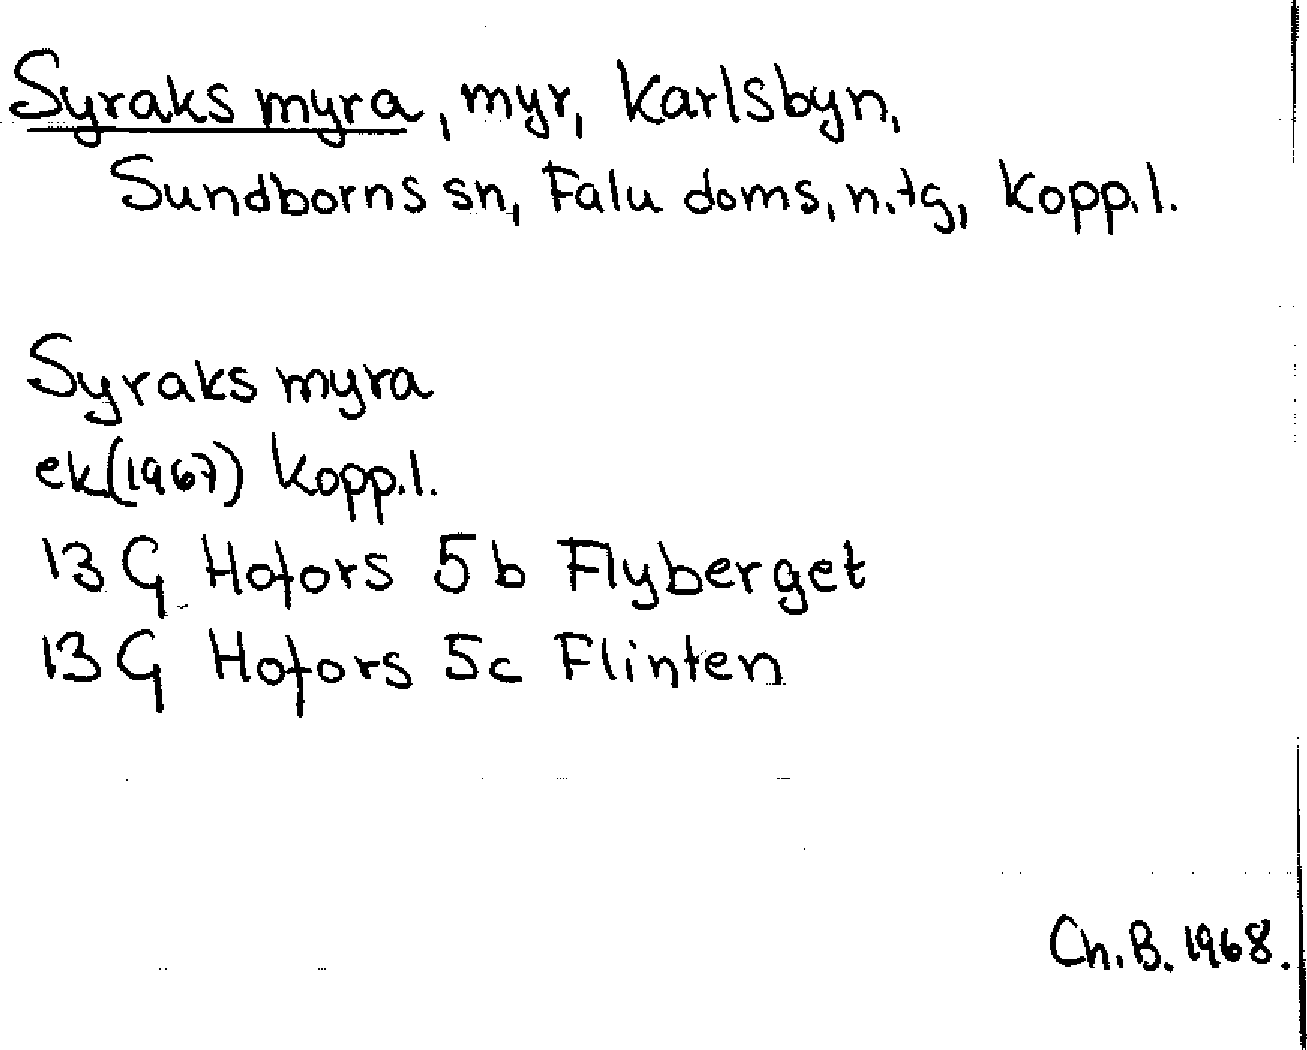 Syraks myra, myr, Karlsbyn,
Sundborns sn, Falu doms, n. tg, Kopp. l.
Syraks myra
ek (1967) Kopp. l.
13 G Hofors 5 b Flyberget
13 G Hofors 5c Flinten
Ch. B. 1968.